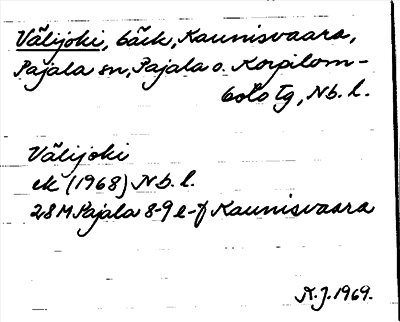 Välijoki, bäck, Kaunisvaara,
Pajala sn, Pajala o. Korpilom-
bolo tg, Nb. l.
Välijoki
ek (1968) Nb. l.
28 M Pajala 8-9 e-f Kaunisvaara
R.J. 1969.